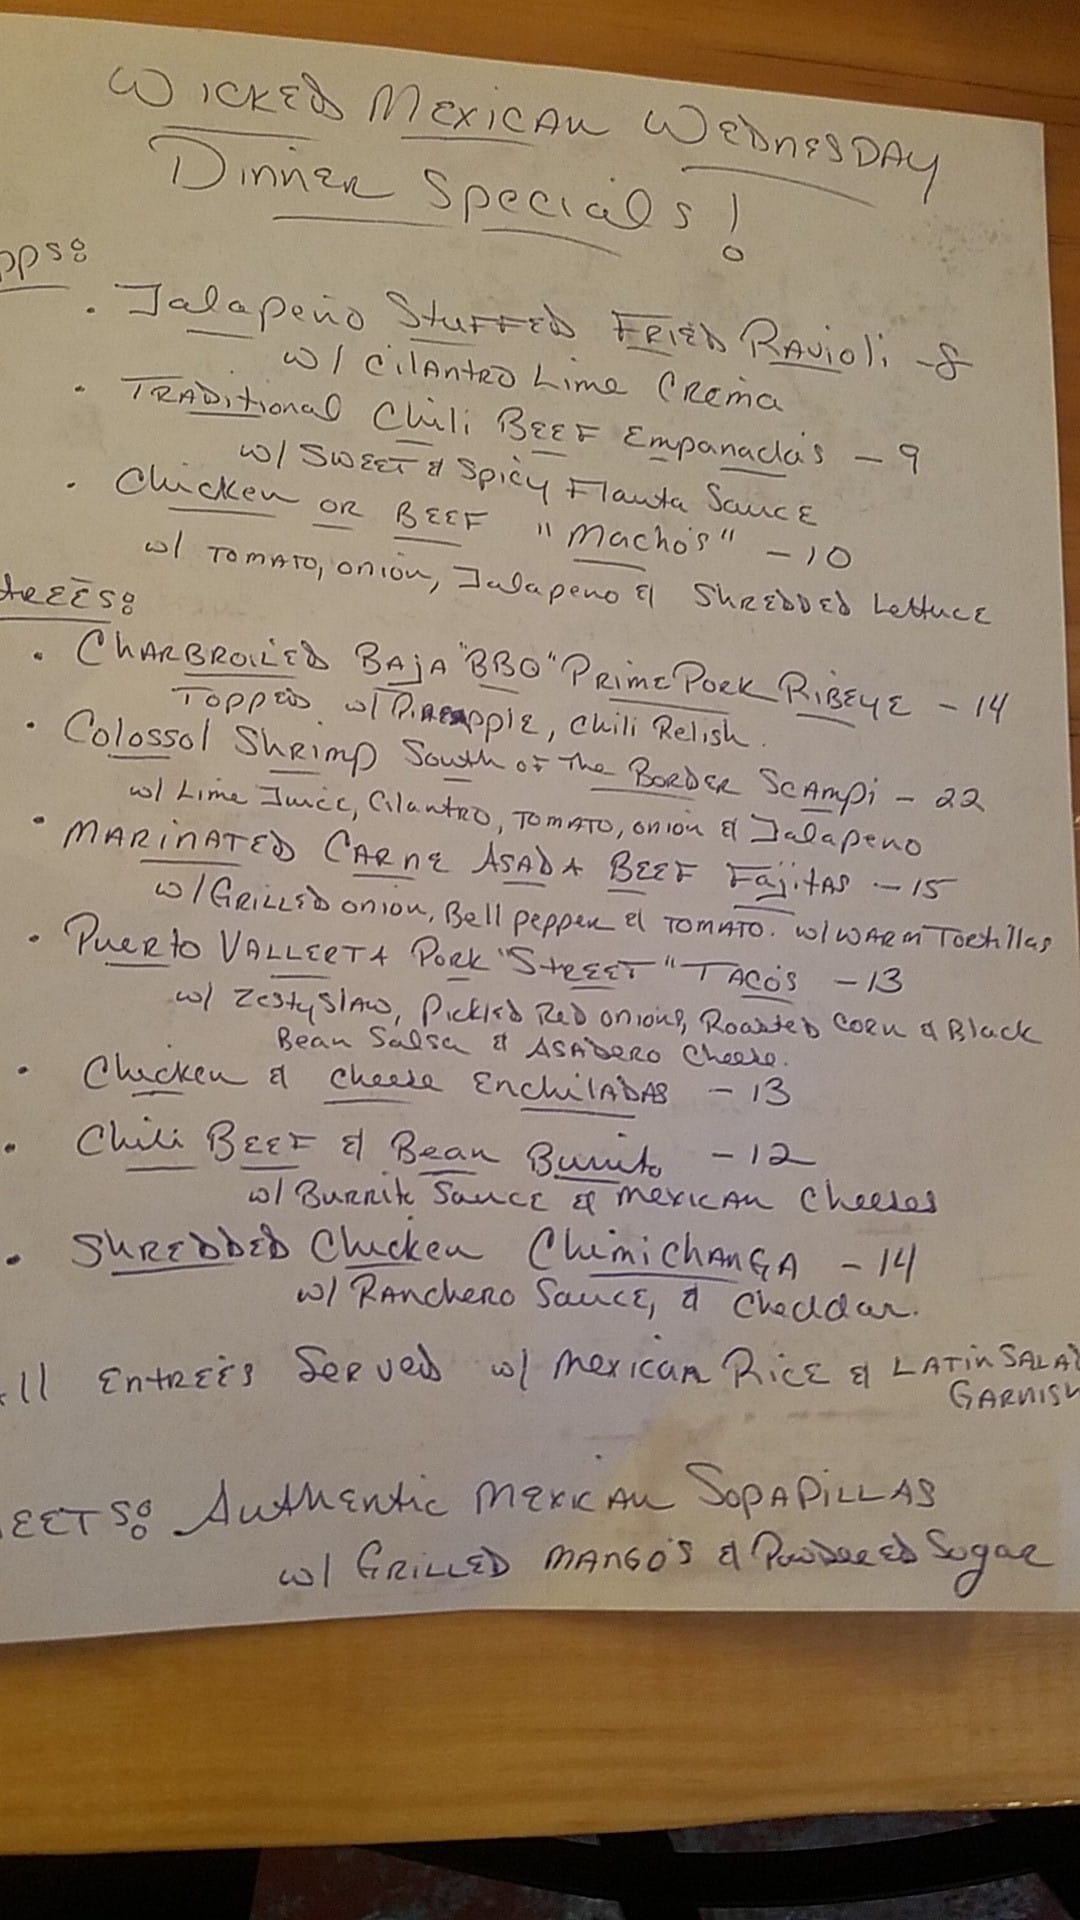 Wicked Mexican Wednesday
Dinner Specials!
pps:
. Jalapeño Stuffed Fried Ravioli - 8
w/ Cilantro Lime Crema
. Traditional Chili Beef Empanada's - 9
w/ Sweet & Spicy Flauta Sauce
. Chicken or Beef "Macho's" - 10
w/ Tomato, onion, Jalapeno & Shredded Lettuce
treēs:
. Charbroiled Baja "BBQ" Prime Pork Ribeye - 14
Topped w/ Pineapple, Chili Relish.
. Colossol Shrimp South of The Border Scampi - 22
w/ Lime Juice, Cilantro, Tomato, onion & Jalapeno
. Marinated Carne Asada Beef Fajitas - 15
w/ Grilled onion, Bell pepper & Tomato. w/ warm Tortillas
. Puerto Vallerta Pork "Street" Taco's - 13
w/ Zesty Slaw, Pickled Red onions, Roasted Corn & Black
Bean Salsa & Asadero Cheese.
. Chicken & cheese Enchiladas - 13
. Chili Beef & Bean Burrito - 12
w/ Burrito Sauce & Mexican Cheeses
. Shredded Chicken Chimichanga - 14
w/ Ranchero Sauce, & Cheddar.
ll Entreé's Served w/ Mexican Rice & Latin Salad
Garnish
eets: Authentic Mexican Sopapillas
w/ Grilled Mango's & Powdered Sugar